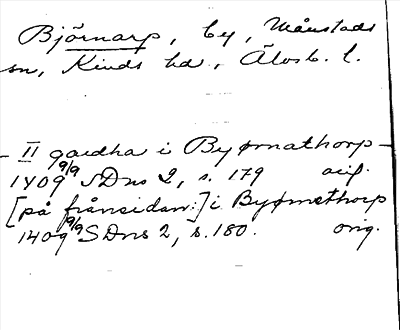 Björnarp, by, Månstads
sn, Kinds hd., Älvsb. l.
- II gardha i Byørnathorp -
1409 9/9 SDns 2, s. 179 orig.
[på frånsidan:] i Byørnethorp
1409 9/9 SDns 2, s. 180. orig.